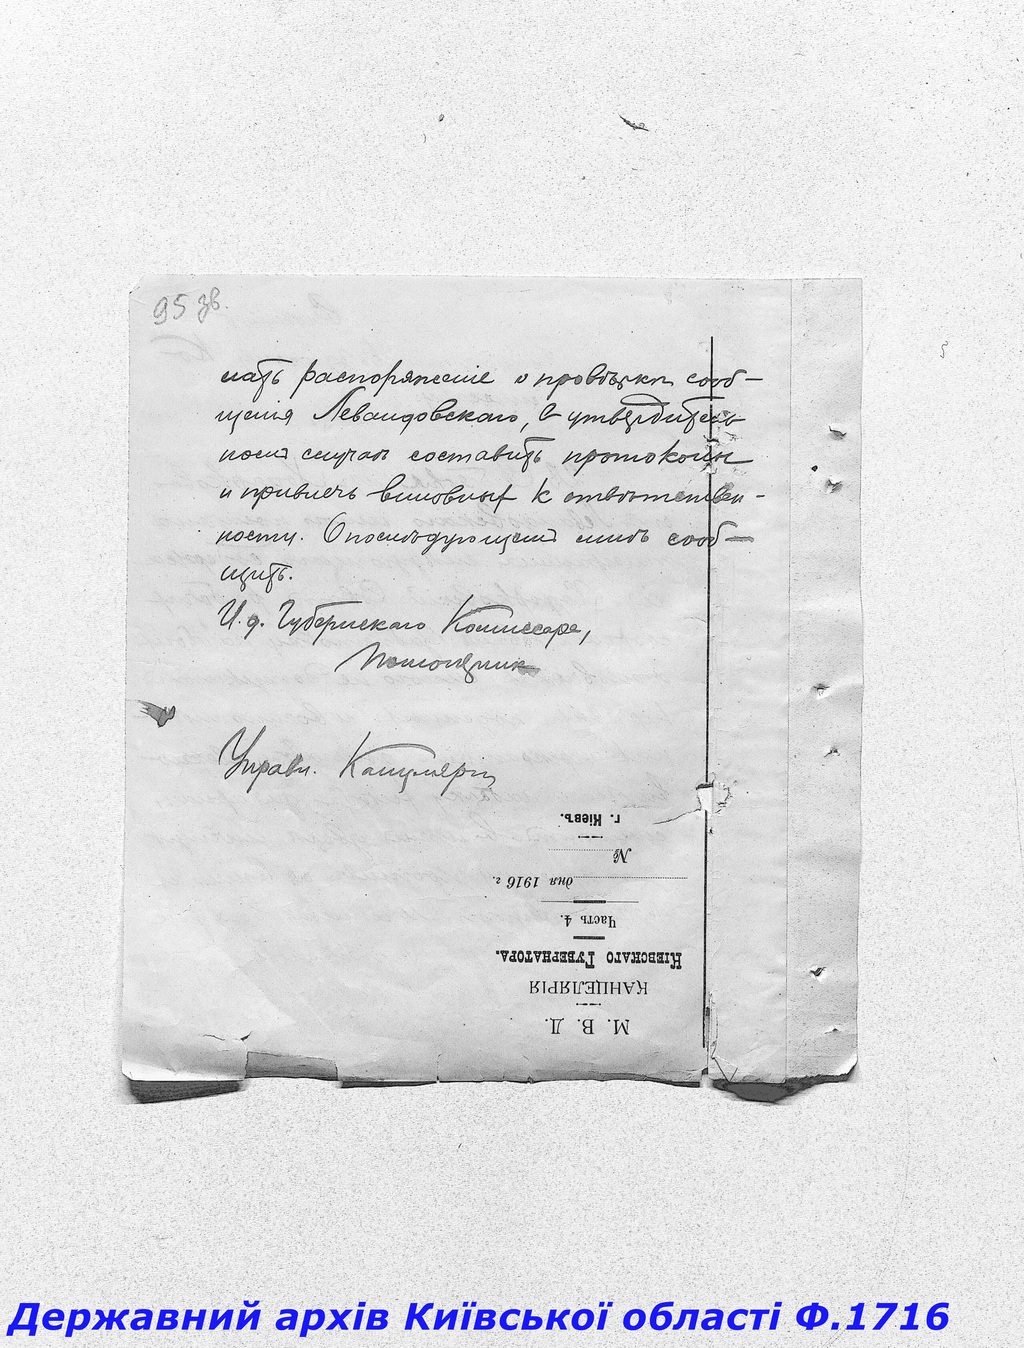 95 зв.
лать распоряженіе о провѣркѣ сооб-
щенія Левандовскаго, въ утвердитель
номъ случаѣ составить протоколы
и привлечь виновныхъ к отвѣтствен-
ности. О послѣдующемъ мнѣ сооб-
щить.
И. д. Губернскаго Комиссара,
Помощник
Управл. Канцеляріи
М. В. Д.
КАНЦЕЛЯРІЯ
КІЕВСКАГО ГУБЕРНАТОРА.
Часть 4.
дня 1916 г.
№
г. Кіевъ.
Державний архів Київської області Ф.1716